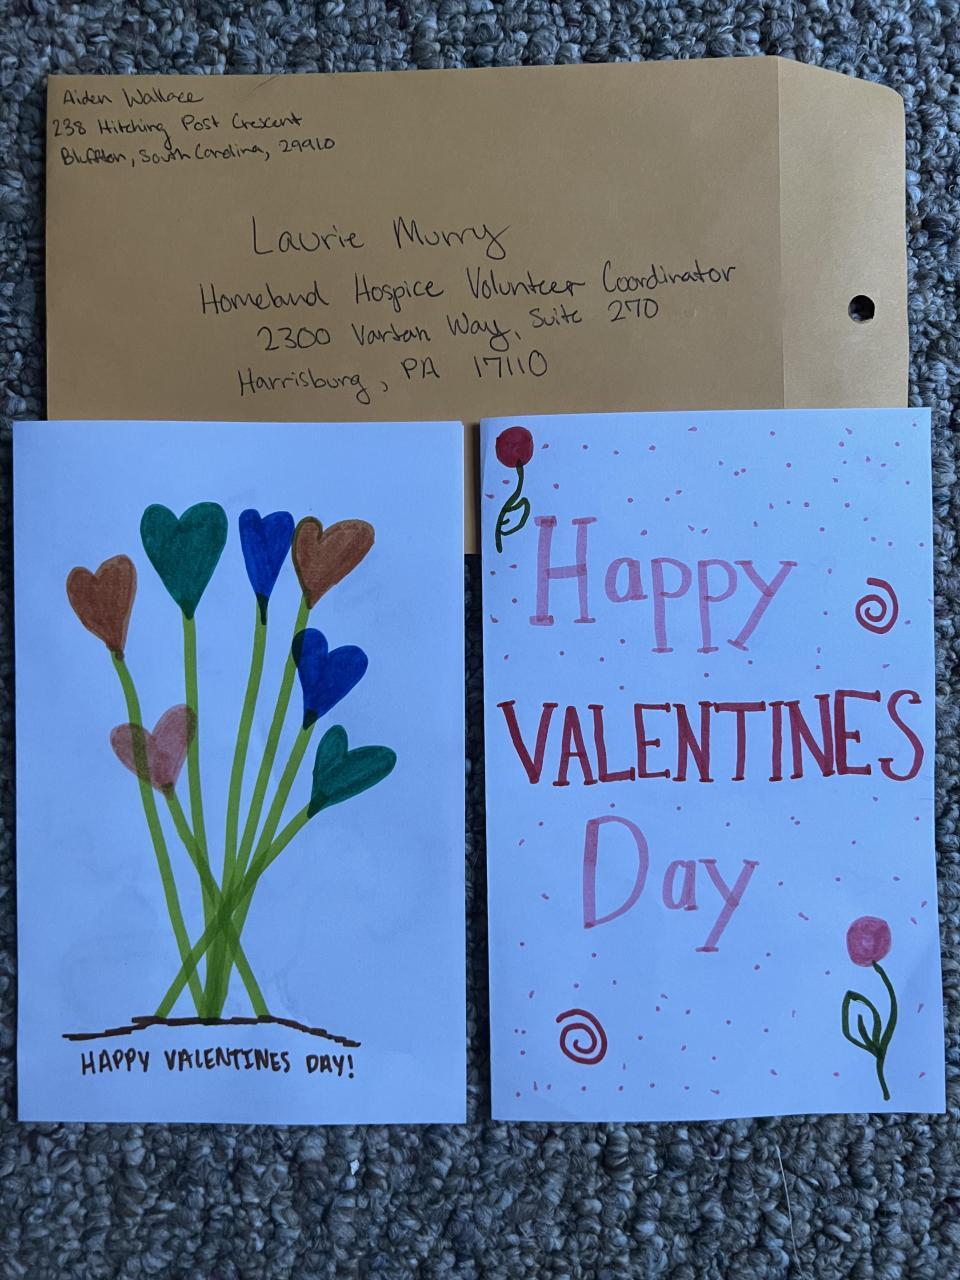 Aiden Wallace
238 Hitching Post Crescent
Bluffton, South Carolina, 29910
Laurie Murry
Homeland Hospice Volunteer Coordinator
2300 Vartan Way, Suite 270
Harrisburg, PA 17110
HAPPY VALENTINES DAY!
Happy
VALENTINES
Day